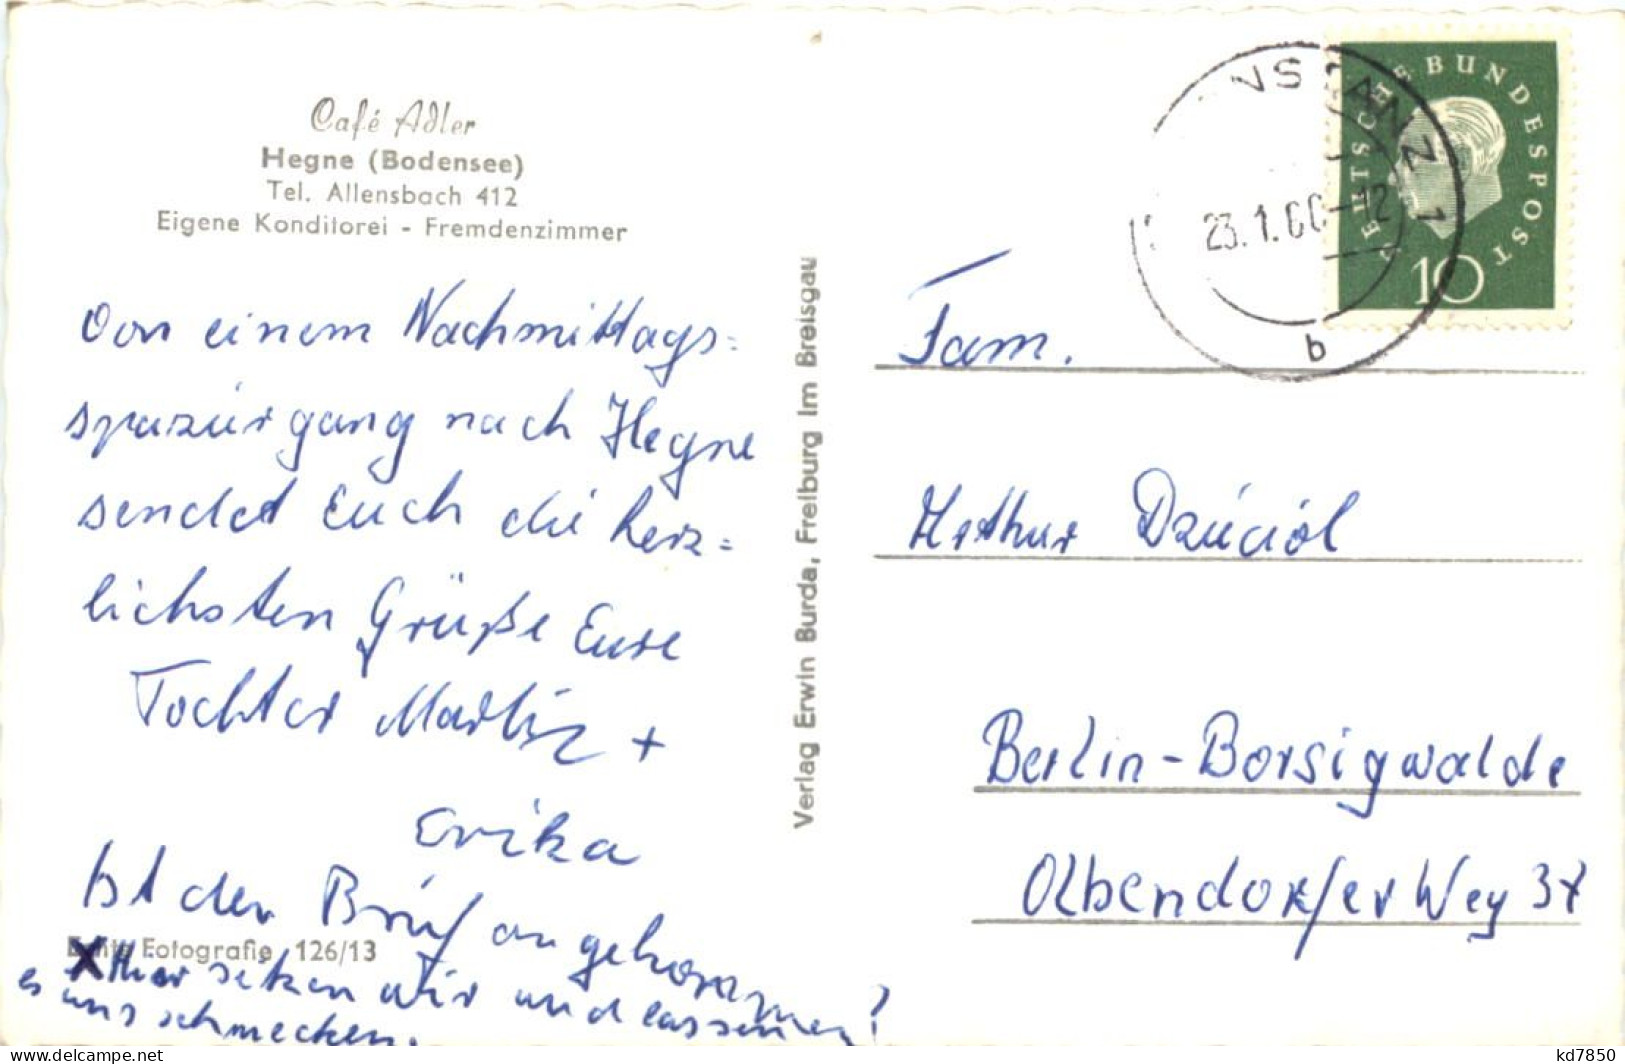 Café Adler
Hegne (Bodensee)
Tel. Allensbach 412
Eigene Konditorei - Fremdenzimmer
Von einem Nachmittags=
spaziergang nach Hegne
sendet Euch die herz=
lichsten Grüße Eure
Tochter Marlis +
Erika
Ist der Brief angekommen?
Fotografie 126/13
X Hier sitzen wir und lassen
es uns schmecken.
Verlag Erwin Burda, Freiburg im Breisgau
NSTANZ 1
23.1.60-12
b
DEUTSCHE BUNDESPOST
10
Fam.
Arthur
Berlin-Borsigwalde
Olbendorfer Weg 37
kd7850